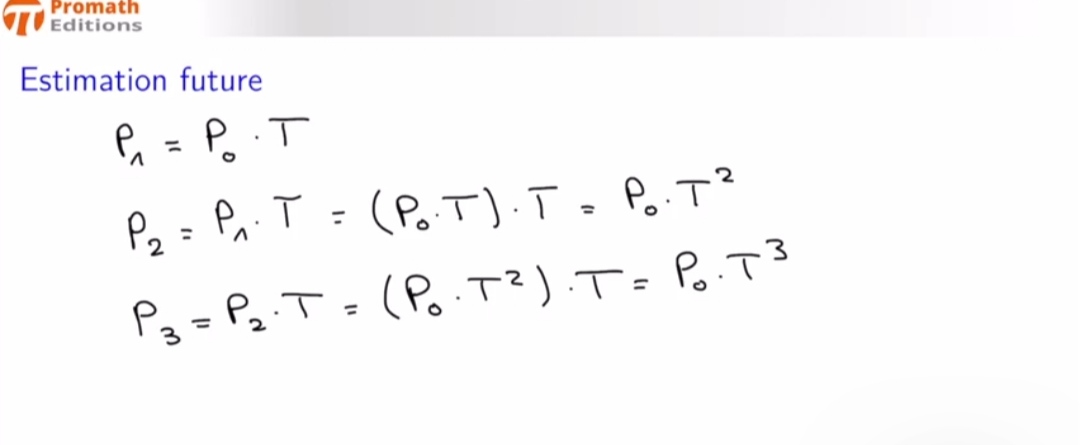 Promath
Editions
Estimation future
P₁ = P₀ · T
P₂ = P₁ · T = (P₀ · T) · T = P₀ · T²
P₃ = P₂ · T = (P₀ · T²) · T = P₀ · T³